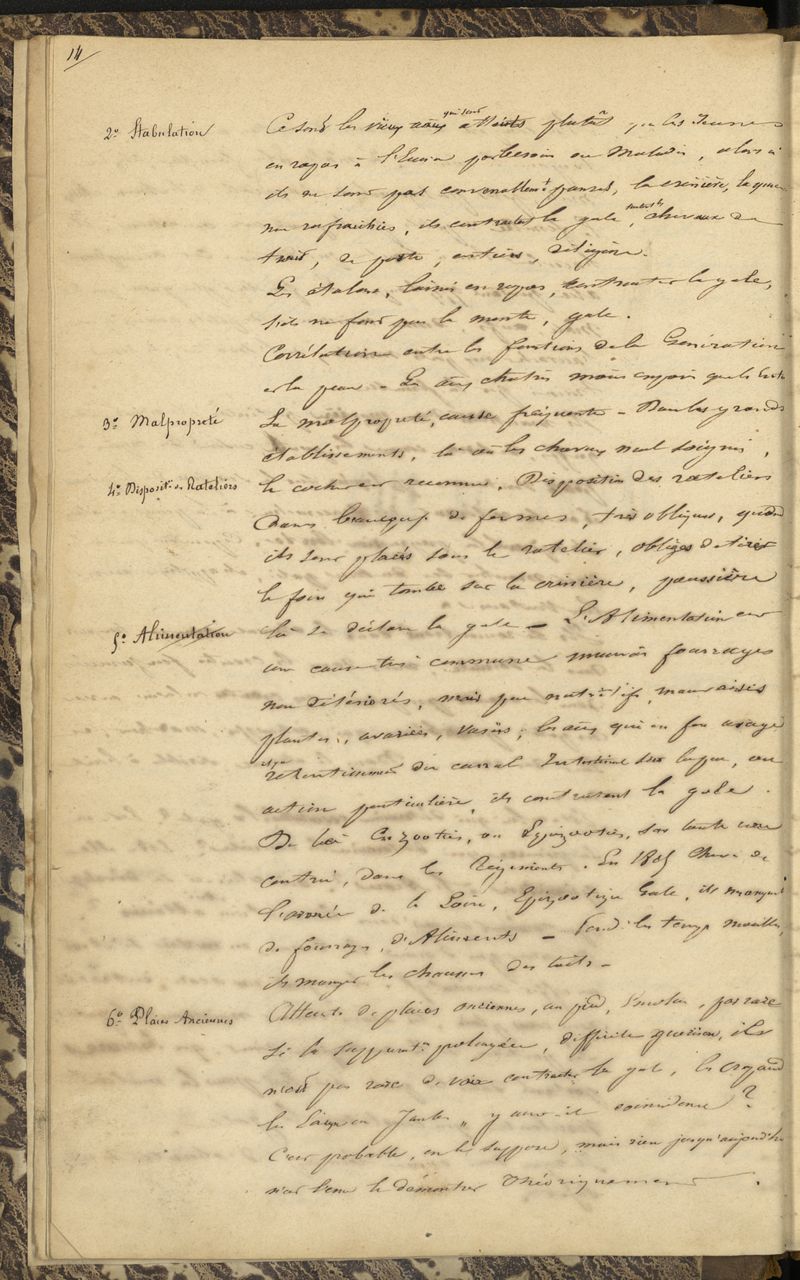 14
2° Stabulation
Ce sont les vieux aux qui sont atteints plutôt que les Jeunes
en repos à l'Ecurie par besoin ou Maladie, alors si
ils ne sont pas convenablemt pansés, la crinière, la queue
non rafraichies, ils contractent la gale, chevaux de
trait, de poste, entiers,
Les étalons, laissés en repos, contracter la gale,
s'ils ne font pas la monte, gale.
Corrélation entre les fonctions de la Génération
et la peau - Les aux chatrés moins exposés que les
3° Malpropreté
La malpropreté, cause fréquente - Dans les grands
établissements, là où les chevaux mal soignés,
4° Disposit. des Rateliers
le cocher est reconnu. Disposition des rateliers
Dans beaucoup de fermes, très obliques, quand
ils sont placés sous le ratelier, obligés de tirer
le foin qui tombe sur la crinière, poussière
5° Alimentation
là se déclare la gale - L'Alimentation est
une cause très commune mauvais fourrages
non détériorés, mais peu nutritifs, mauvaises
plantes, avariés, vasés, les aux qui en font usage
retentissement du canal Intestinal sur la peau, une
action particulière, ils contractent la gale.
De là Enzooties, ou Epizooties, sur toute une
contrée, dans les Régiments. En 1815 Chev. de
l'armée de la Loire, Epizootique Gale, ils manquent
de fourrages, d'Aliments - Pendt les temps mouillés,
ils manger les chaumes des toits -
6° Plaies Anciennes
Atteints de plaies anciennes, au pied, pas rare
Si la suppurat. prolongée, difficile guérison, il
n'est pas rare de voir contracter la gale, les
les Eaux aux Jambes, y aura-t-il coincidence ?
C'est probable, on le suppose, mais rien jusqu'aujourd'hui
n'est venu le démontrer Théoriquement.